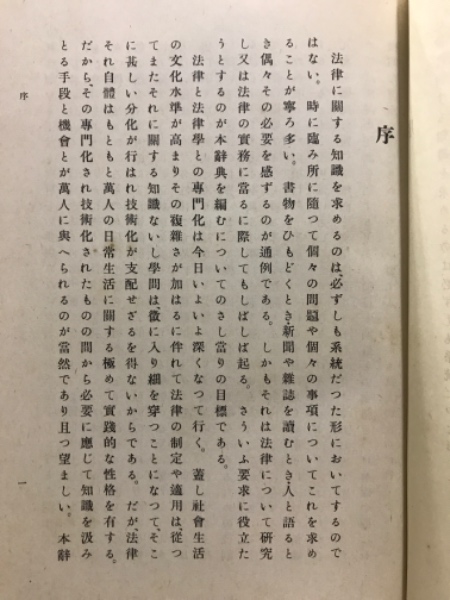 序
法律に關する知識を求めるのは、必ずしも系統だつた形においてするので
はない。時に臨み所に隨つて個々の問題や個々の事項についてこれを求め
ることが寧ろ多い。書物をひもどくとき、新聞や雜誌を讀むとき、人と語ると
き偶々その必要を感ずるのが通例である。しかもそれは法律について研究
し又は法律の實務に當るに際してもしばしば起る。さういふ要求に役立た
うとするのが本辭典を編むについてのさし當りの目標である。
法律と法律學との專門化は今日いよいよ深くなつて行く。蓋し社會生活
の文化水準が高まりその複雜さが加はるに伴れて法律の制定や適用は、從つ
てまたそれに關する知識ないし學問は、微に入り細を穿つことになつて、そこ
に甚しい分化が行はれ技術化が支配せざるを得ないからである。だが、法律
それ自體はもともと萬人の日常生活に關する極めて實踐的な性格を有する。
だから、その專門化され技術化されたものの間から必要に應じて知識を汲み
とる手段と機會とが萬人に與へられるのが當然であり且つ望ましい。本辭
序
一